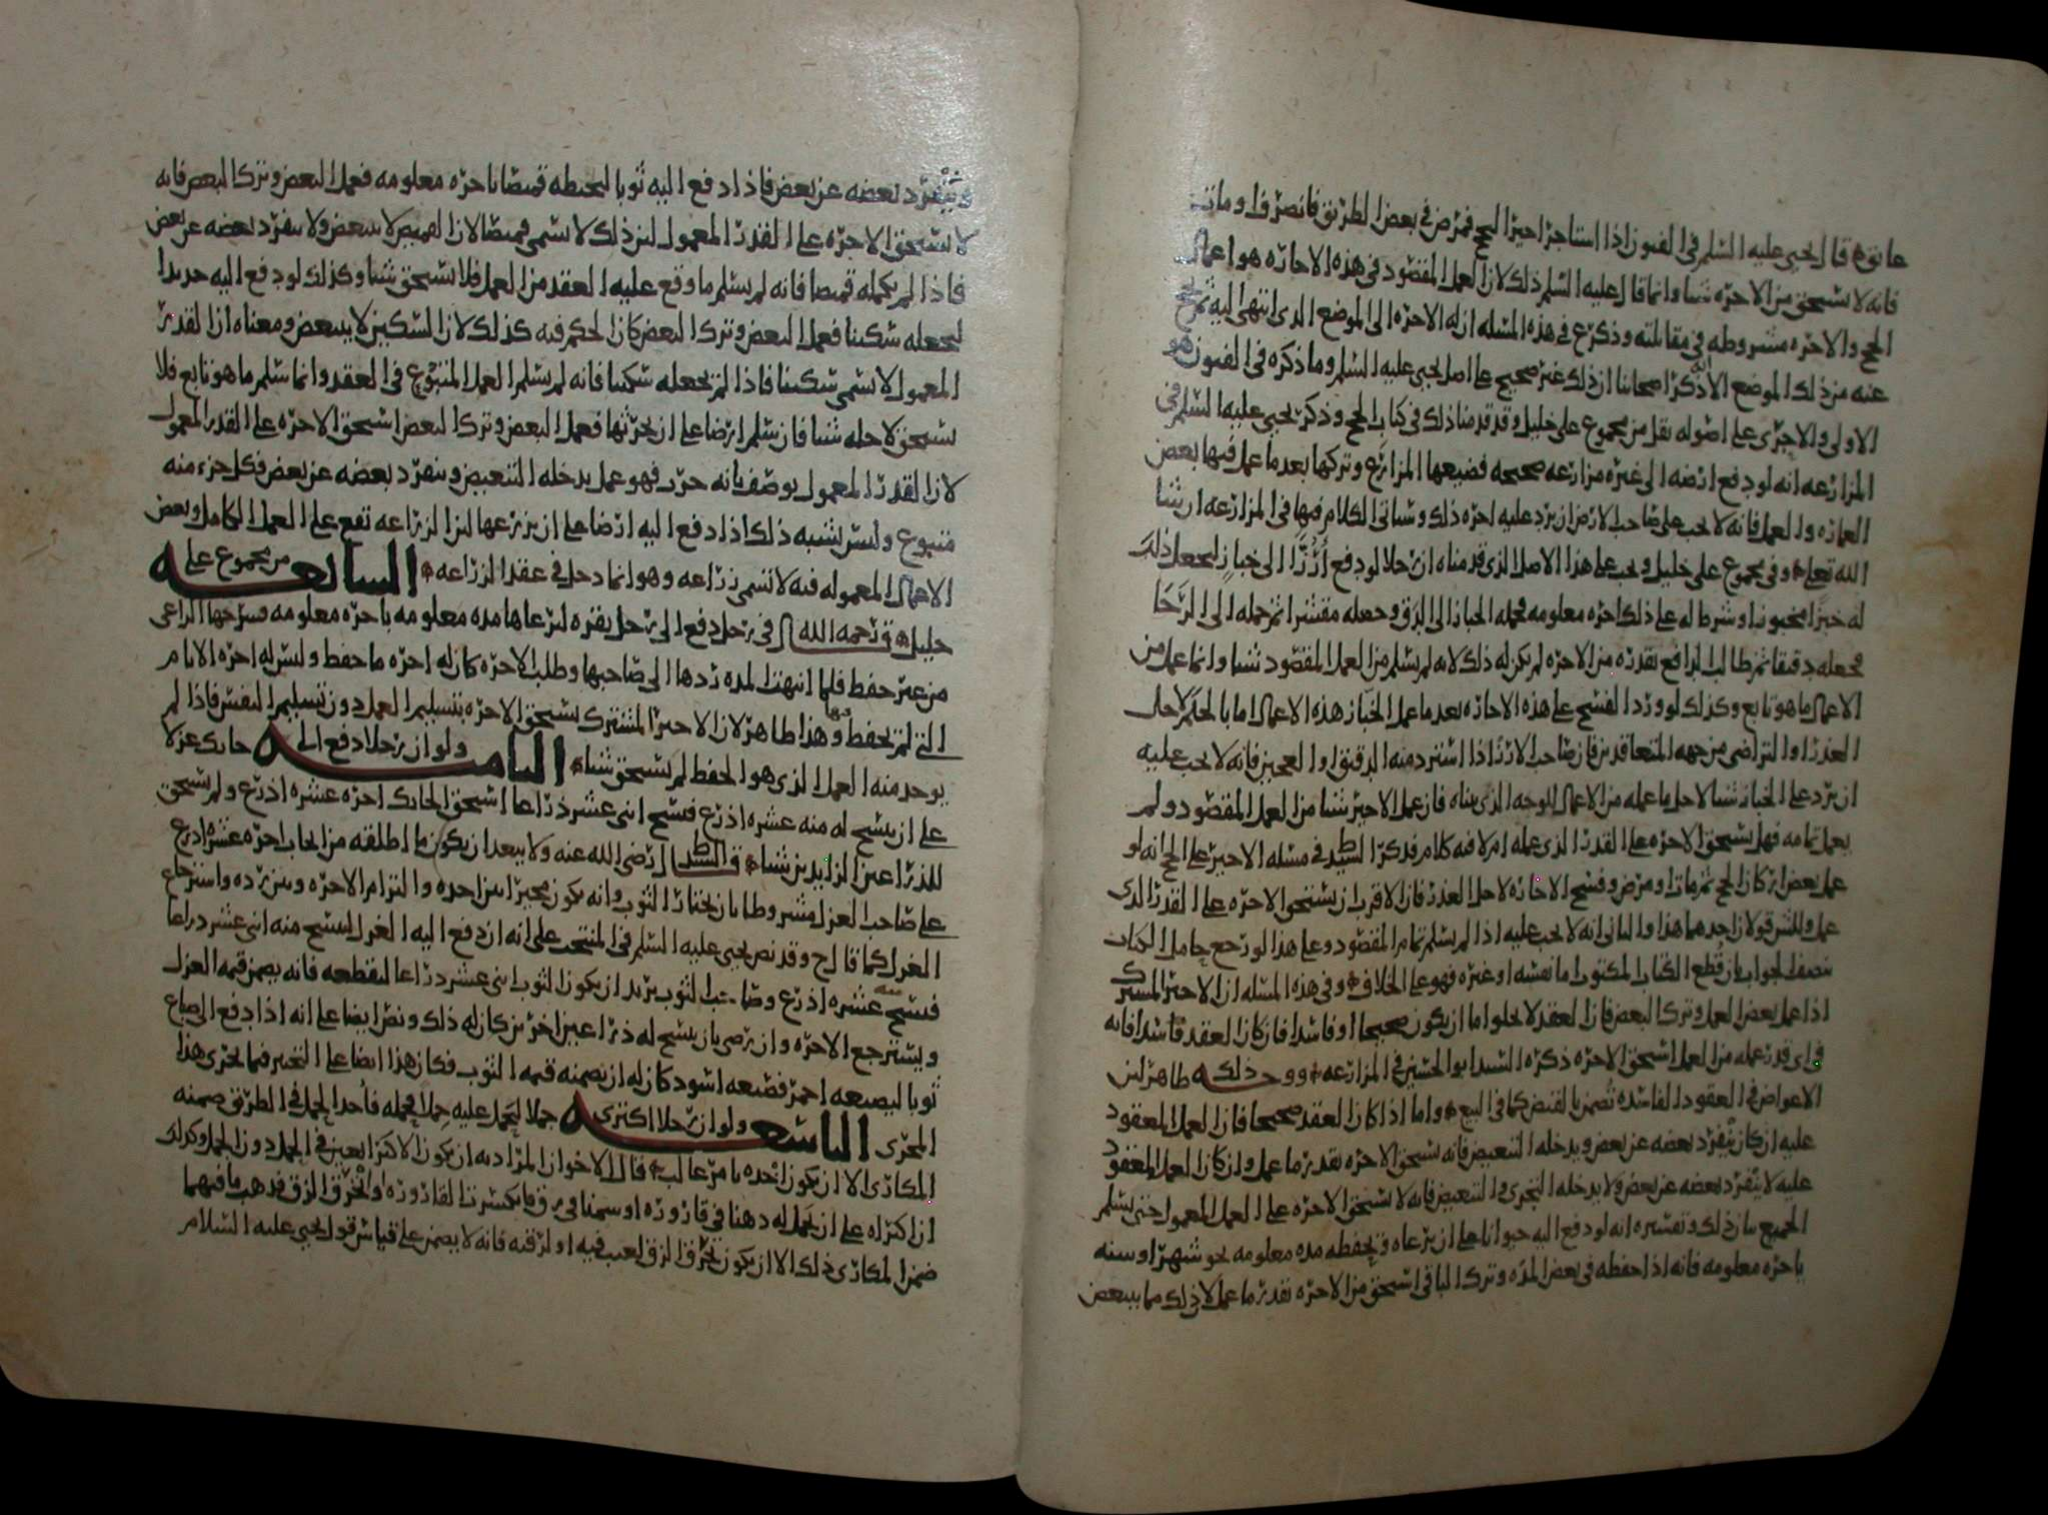 عائق قال يحيى عليه السلم في الفنون اذا استاجر اجيرا للحج فمرض في بعض الطريق فانصرف او مات
فانه لا يستحق من الاجره شيا وانما قال عليه السلم ذلك لان العمل المقصود في هذه الاجاره هو اعمال
الحج والاجره مشروطه في مقابلته وذكر ع في هذه المسله ان له الاجره الى الموضع الذى انتهى اليه ثم يحج
عنه من ذلك الموضع الا ذكر اصحابنا ان ذلك غير صحيح على اصل يحيى عليه السلم وما ذكره في الفنون هو
الاولى والاجرى على اصوله نقل من مجموع على خليل وقد قدمنا ذلك في كتاب الحج وذكر يحيى عليه السلم في
المزارعه انه لو دفع ارضه الى غيره مزارعه صحيحه فضيعها المزارع وتركها بعد ما عمل فيها بعض
العماره والعمل فانه لا يجب على صاحب الارض ان يرد عليه اجره ذلك وسياتى الكلام فيها في المزارعه ان شا
الله تعلى وفي مجموع على خليل ويجب على هذا الاصل الذى قدمناه ان رجلا لو دفع ارزا الى خباز ليجعل ذلك
له خبزا مخبوزا وشرط له على ذلك اجره معلومه فحمله الخباز الى الدق وجعله مقشرا ثم حمله الى الرحا
فجعله دقيقا ثم طالب الدافع بقدره من الاجره لم يكن له ذلك لانه لم يسلم من العمل المقصود شيا وانما عمل من
الاعمال ما هو تابع وكذلك لو ورد الفسخ على هذه الاجاره بعد ما عمل الخباز هذه الاعمال اما بالحكم لاجل
العذر او التراضى من جهه المتعاقدين فان صاحب الارز اذا استرد منه الدقيق او العجين فانه لا يجب عليه
ان يرد على الخباز شيا لاجل ما عمله من الاعمال للوجه الذى بيناه فان عمل الاجير شيا من العمل المقصود ولم
يعمل تمامه فهل يستحق الاجره على القدر الذى عمله ام لا فيه كلام فذكر السيد ط في مسله الاجير على الحج انه لو
عمل بعض اركان الحج ثم مات او مرض وفسخ الاجاره لاجل العذر فان الاقرب ان يستحق الاجره على القدر الذى
عمل وللش قولان احدهما هذا والثانى انه لا يجب عليه اذا لم يسلم تمام المقصود وعلى هذا لو رجع حامل الكتاب
بنصف الجواب بان قطع الكتاب المكتوب اما نفسه او غيره فهو على الخلاف وفي هذه المسله ان الاجير المشترك
اذا عمل بعض العمل وترك البعض فان العقد لا يخلوا اما ان يكون صحيحا او فاسدا فان كان العقد فاسدا فانه
فاى قدر عمله من العمل استحق الاجره ذكره السيد ابو الحسين في المزارعه ووجه ذلك ظاهر لان
الاعواض في العقود الفاسده تضمن بالقبض كما في البيع واما اذا كان العقد صحيحا فان العمل المعقود
عليه ان كان ينفرد بعضه عن بعض ويدخله التبعيض فانه يستحق الاجره بقدر ما عمل وان كان العمل المعقود
عليه لا ينفرد بعضه عن بعض ولا يدخله التجرى والتبعيض فانه لا يستحق الاجره على العمل المعمول حتى يسلم
الجميع بيان ذلك وتفسيره انه لو دفع اليه حيوانا على ان يرعاه ويحفظه مده معلومه نحو شهر او سنه
باجره معلومه فانه اذا حفظه في بعض المده وترك الباقى استحق من الاجره بقدر ما عمل لان ذلك مما يتبعض
وينفرد بعضه عن بعض فاذا دفع اليه ثوبا ليخيطه قميصا باجره معلومه فعمل البعض وترك البعض فانه
لا يستحق الاجره على القدر المعمول لان ذلك لا يسمى قميصا لان القميص لا يتبعض ولا ينفرد بعضه عن بعض
فاذا لم يكمله قميصا فانه لم يسلم ما وقع عليه العقد من العمل فلا يستحق شيا وكذلك لو دفع اليه حديدا
ليجعله سكينا فعمل البعض وترك البعض كان الحكم فيه كذلك لان السكين لا يتبعض ومعناه ان القدر
المعمول لا يسمى سكينا فاذا لم يجعله سكينا فانه لم يسلم العمل المتبوع في العقد وانما سلم ما هو تابع فلا
يستحق لاجله شيا فان سلم ارضا على ان يحرثها فعمل البعض وترك البعض استحق الاجره على القدر المعمول
لان القدر المعمول يوصف بانه حرث فهو عمل يدخله التبعيض وينفرد بعضه عن بعض فكل جزء منه
متبوع وليس يشبه ذلك اذا دفع اليه ارضا على ان يزرعها لان الزراعه تقع على العمل الكامل وبعض
الاعمال المعموله فيه لا تسمى زراعه وهو انما دخل في عقد الزراعه السابعه من مجموع على
خليل ق رحمه الله في رجل دفع الى رجل بقره ليرعاها مده معلومه باجره معلومه فسرحها الراعى
من غير حفظ فلما انتهت المده ردها الى صاحبها وطلب الاجره كان له اجره ما حفظ وليس له اجره الايام
التى لم يحفظ فيها وهذا ظاهر لان الاجير المشترك يستحق الاجره بتسليم العمل دون تسليم النفس فاذا لم
يوجد منه العمل الذى هو الحفظ لم يستحق شيا الثامنه ولو ان رجلا دفع الى حائك غزلا
على ان ينسج له منه عشره اذرع فنسج اثنى عشر ذراعا استحق الحائك اجره عشره اذرع ولم يستحق
للذراعين الزايدين شيا ق السيد ط رضى الله عنه ولا يبعد ان يكون ما اطلقه من ايجاب اجره عشره اذرع
على صاحب الغزل مشروطا بان يختار الثوب وانه يكون مخيرا بين اخذه والتزام الاجره وبين رده واسترجاع
الغزل كما قال ح وقد نص يحيى عليه السلم في المنتخب على انه ان دفع اليه الغزل لينسج منه اثنى عشر ذراعا
فنسج منه عشره اذرع وصاحب الثوب يريد ان يكون الثوب اثنى عشر ذراعا ليقطعه فانه يضمن قيمه الغزل
ويسترجع الاجره وان رضى بان ينسج له ذراعين اخرين كان له ذلك ونص ايضا على انه اذا دفع الى صباغ
ثوبا ليصبغه احمر فصبغه اسود كان له ان يضمنه قيمه الثوب فكان هذا ايضا على التخيير فيما يجرى هذا
المجرى التاسعه ولو ان رجلا اكترى جملا ليحمل عليه حملا فحمله فأخذ الحمل في الطريق ضمنه
المكارى الا ان يكون اخذه بامر غالب قال الاخوان المراد به ان يكون الاكترا بعين في الحمل دون الجمل وكذلك
ان اكتراه على ان يحمل له دهنا في قاروره او سمنا في زق فانكسرت القاروره او انخرق الزق فذهب ما فيهما
ضمن المكارى ذلك الا ان يكون تخرق الزق لعيب فيه او لرقته فانه لا يضمن على قياس قول يحيى عليه السلام